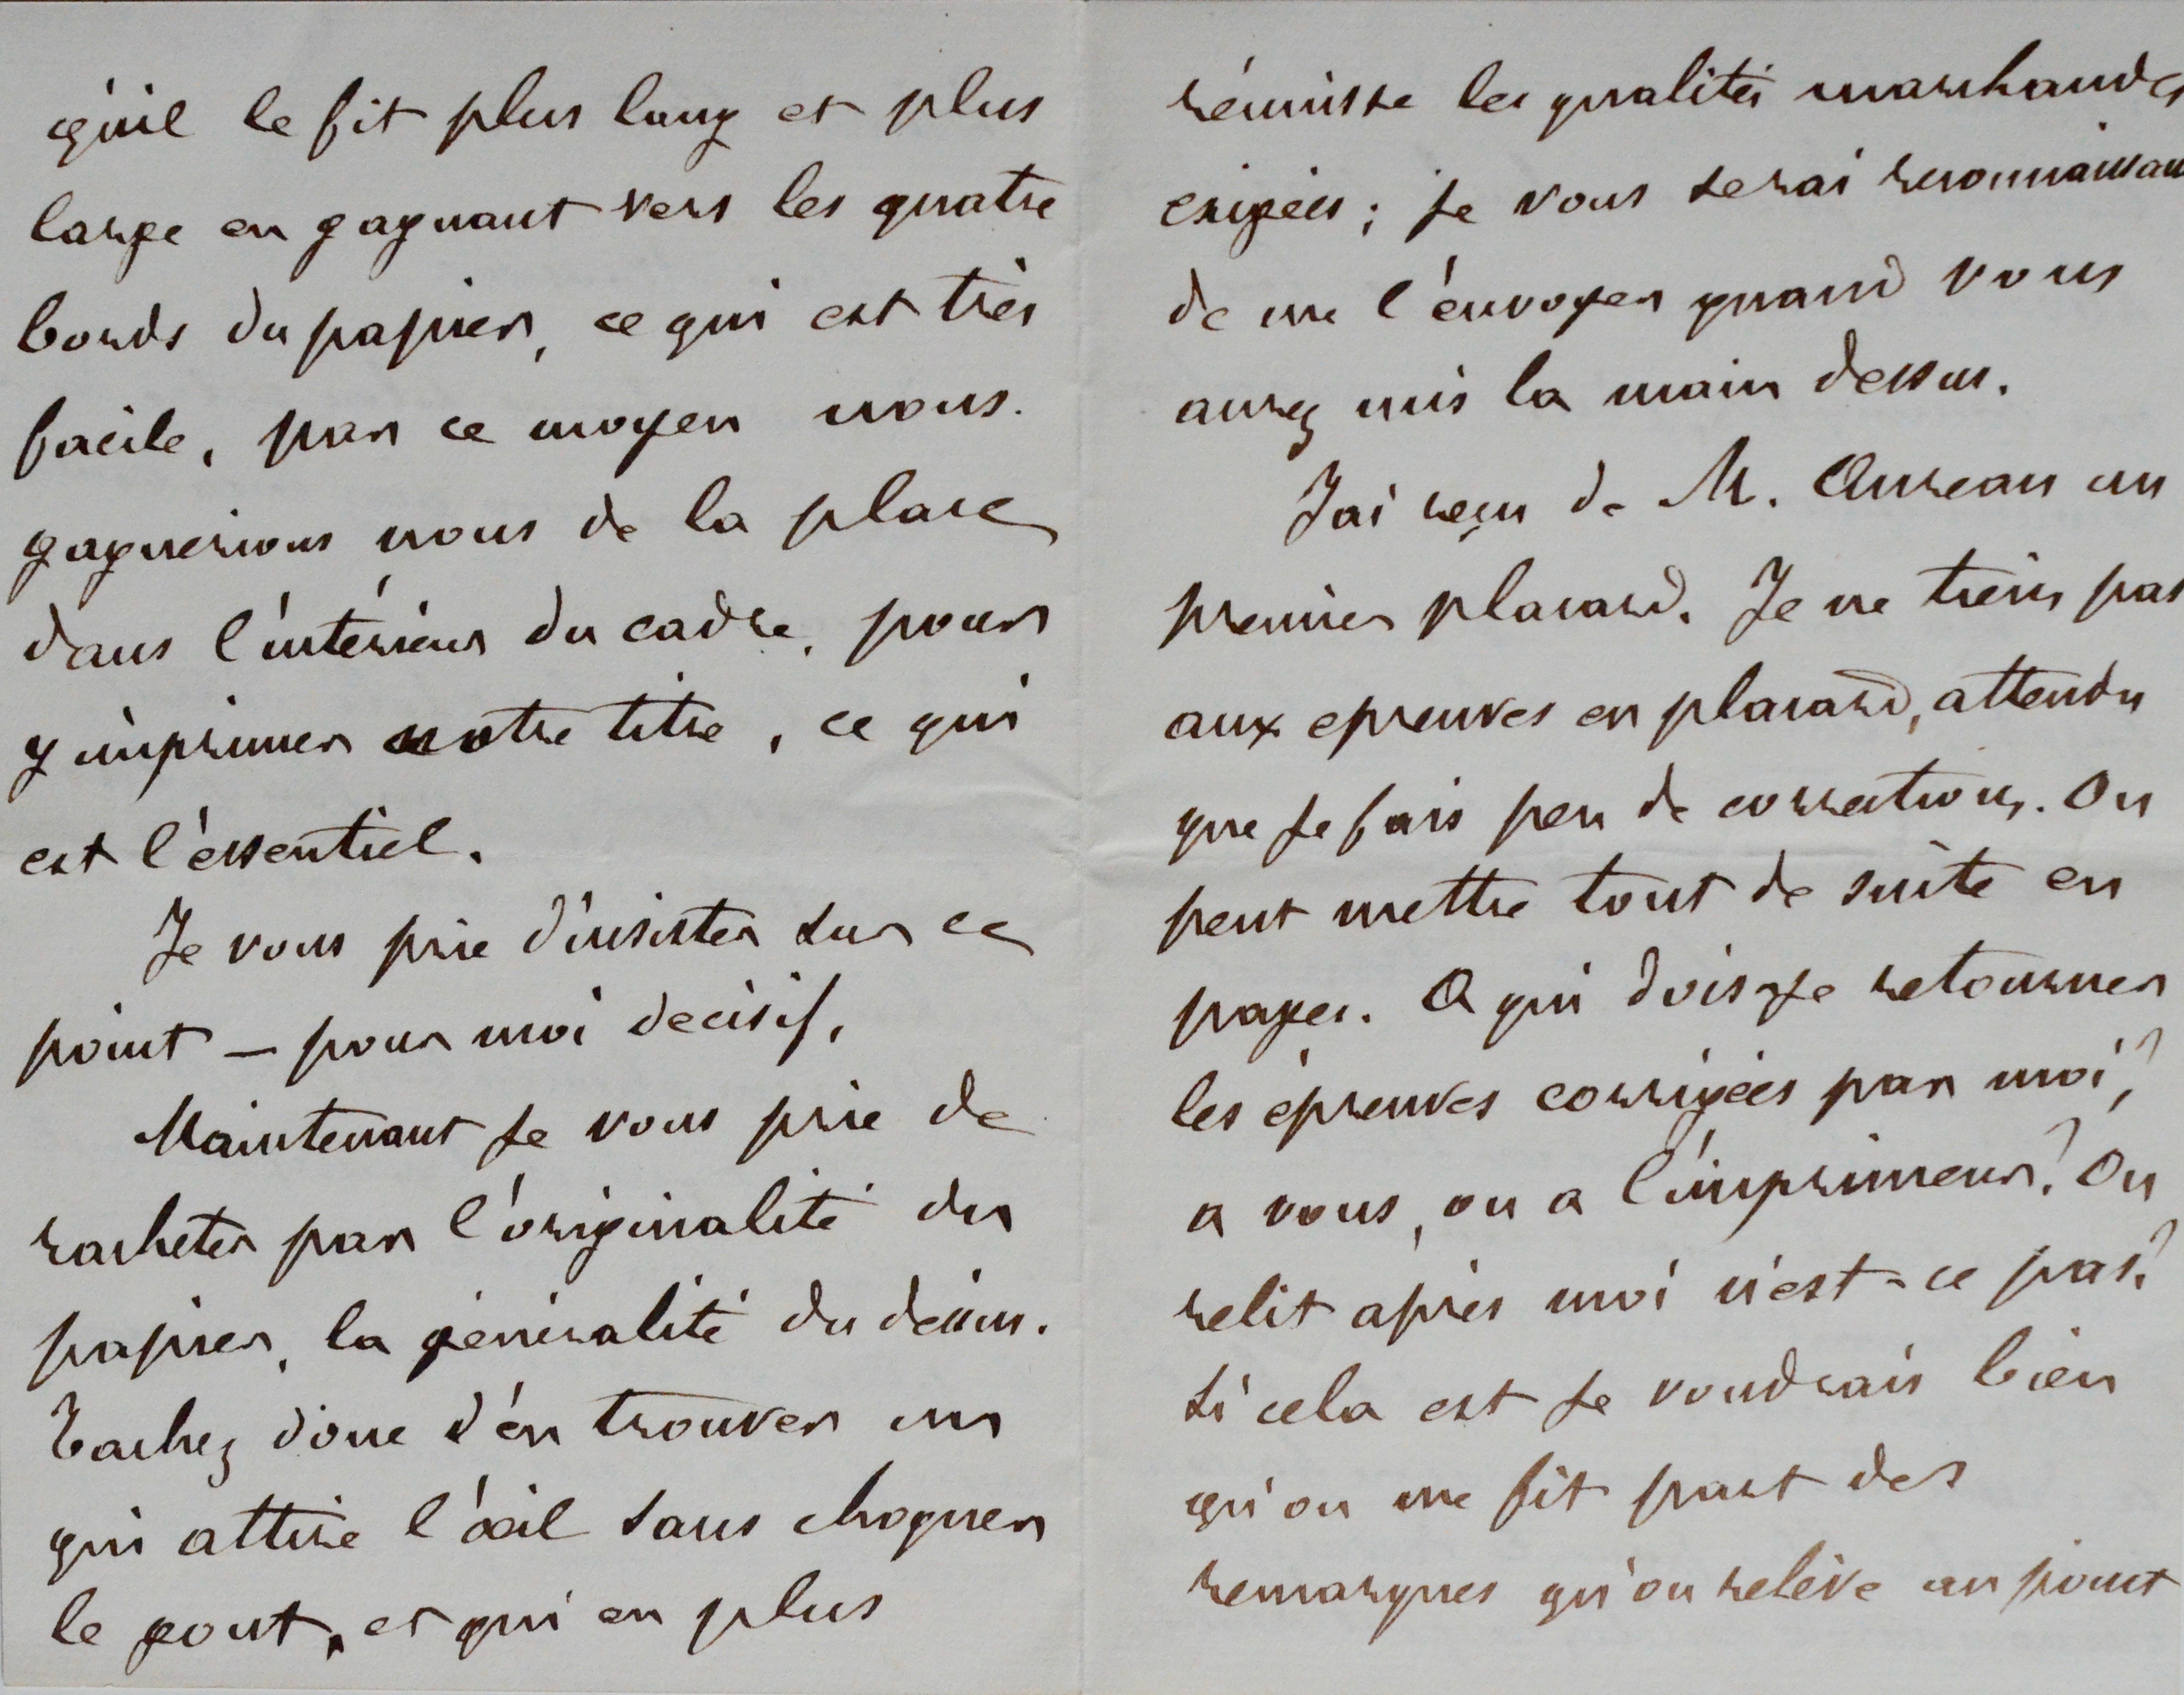 qu'il le fit plus long et plus
large en gagnant vers les quatre
bords du papier, ce qui est très
facile, par ce moyen nous
gagnerions nous de la place
dans l'intérieur du cadre, pour
y imprimer notre titre, ce qui
est l'essentiel.
Je vous prie d'insister sur ce
point — pour moi decisif,
Maintenant je vous prie de
racheter par l'originalité du
papier, la généralité du dessin.
Tachez donc d'en trouver un
qui attire l'œil sans choquer
le gout, et qui en plus
réunisse les qualités marchandes
exigées ; je vous serai reconnaissant
de me l'envoyer quand vous
aurez mis la main dessus.
J'ai reçu de M. Aureau un
premier placard. Je ne tiens pas
aux epreuves en placard, attendu
que je fais peu de corrections. On
peut mettre tout de suite en
pages. A qui dois-je retourner
les épreuves corrigées par moi,?
a vous, ou a l'imprimeur? On
relit après moi n'est-ce pas?
Si cela est je voudrais bien
qu'on me fit part des
remarques qu'on relève au point